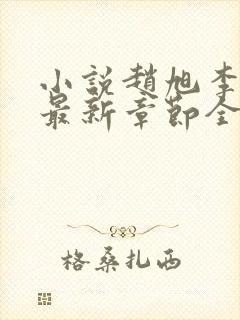 小説趙旭李
最新章節全
格桑扎西